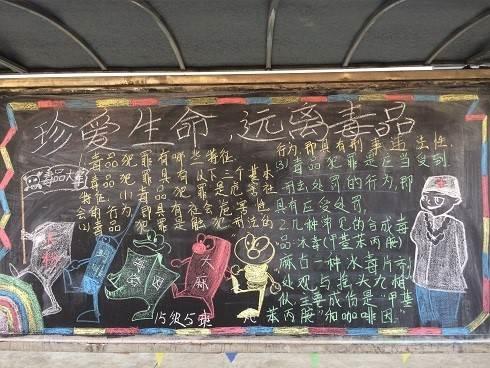 珍爱生命,远离毒品
1.毒品犯罪有哪些特征
毒品犯罪具有以下三个基本
特征(1)毒品犯罪是危害社
会的行为即具有社会危害性
(2)毒品犯罪是触犯刑法的
行为,即具有刑事违法性.
(3)毒品犯罪是应当受到
刑法处罚的行为,即
具有应受处罚,
2.几种常见的合成毒
品冰毒(甲基苯丙胺)
麻古一种冰毒片剂
外观与摇头丸相
似主要成份是"甲基
苯丙胺"和咖啡因"
毒品大军
大麻
15级5班